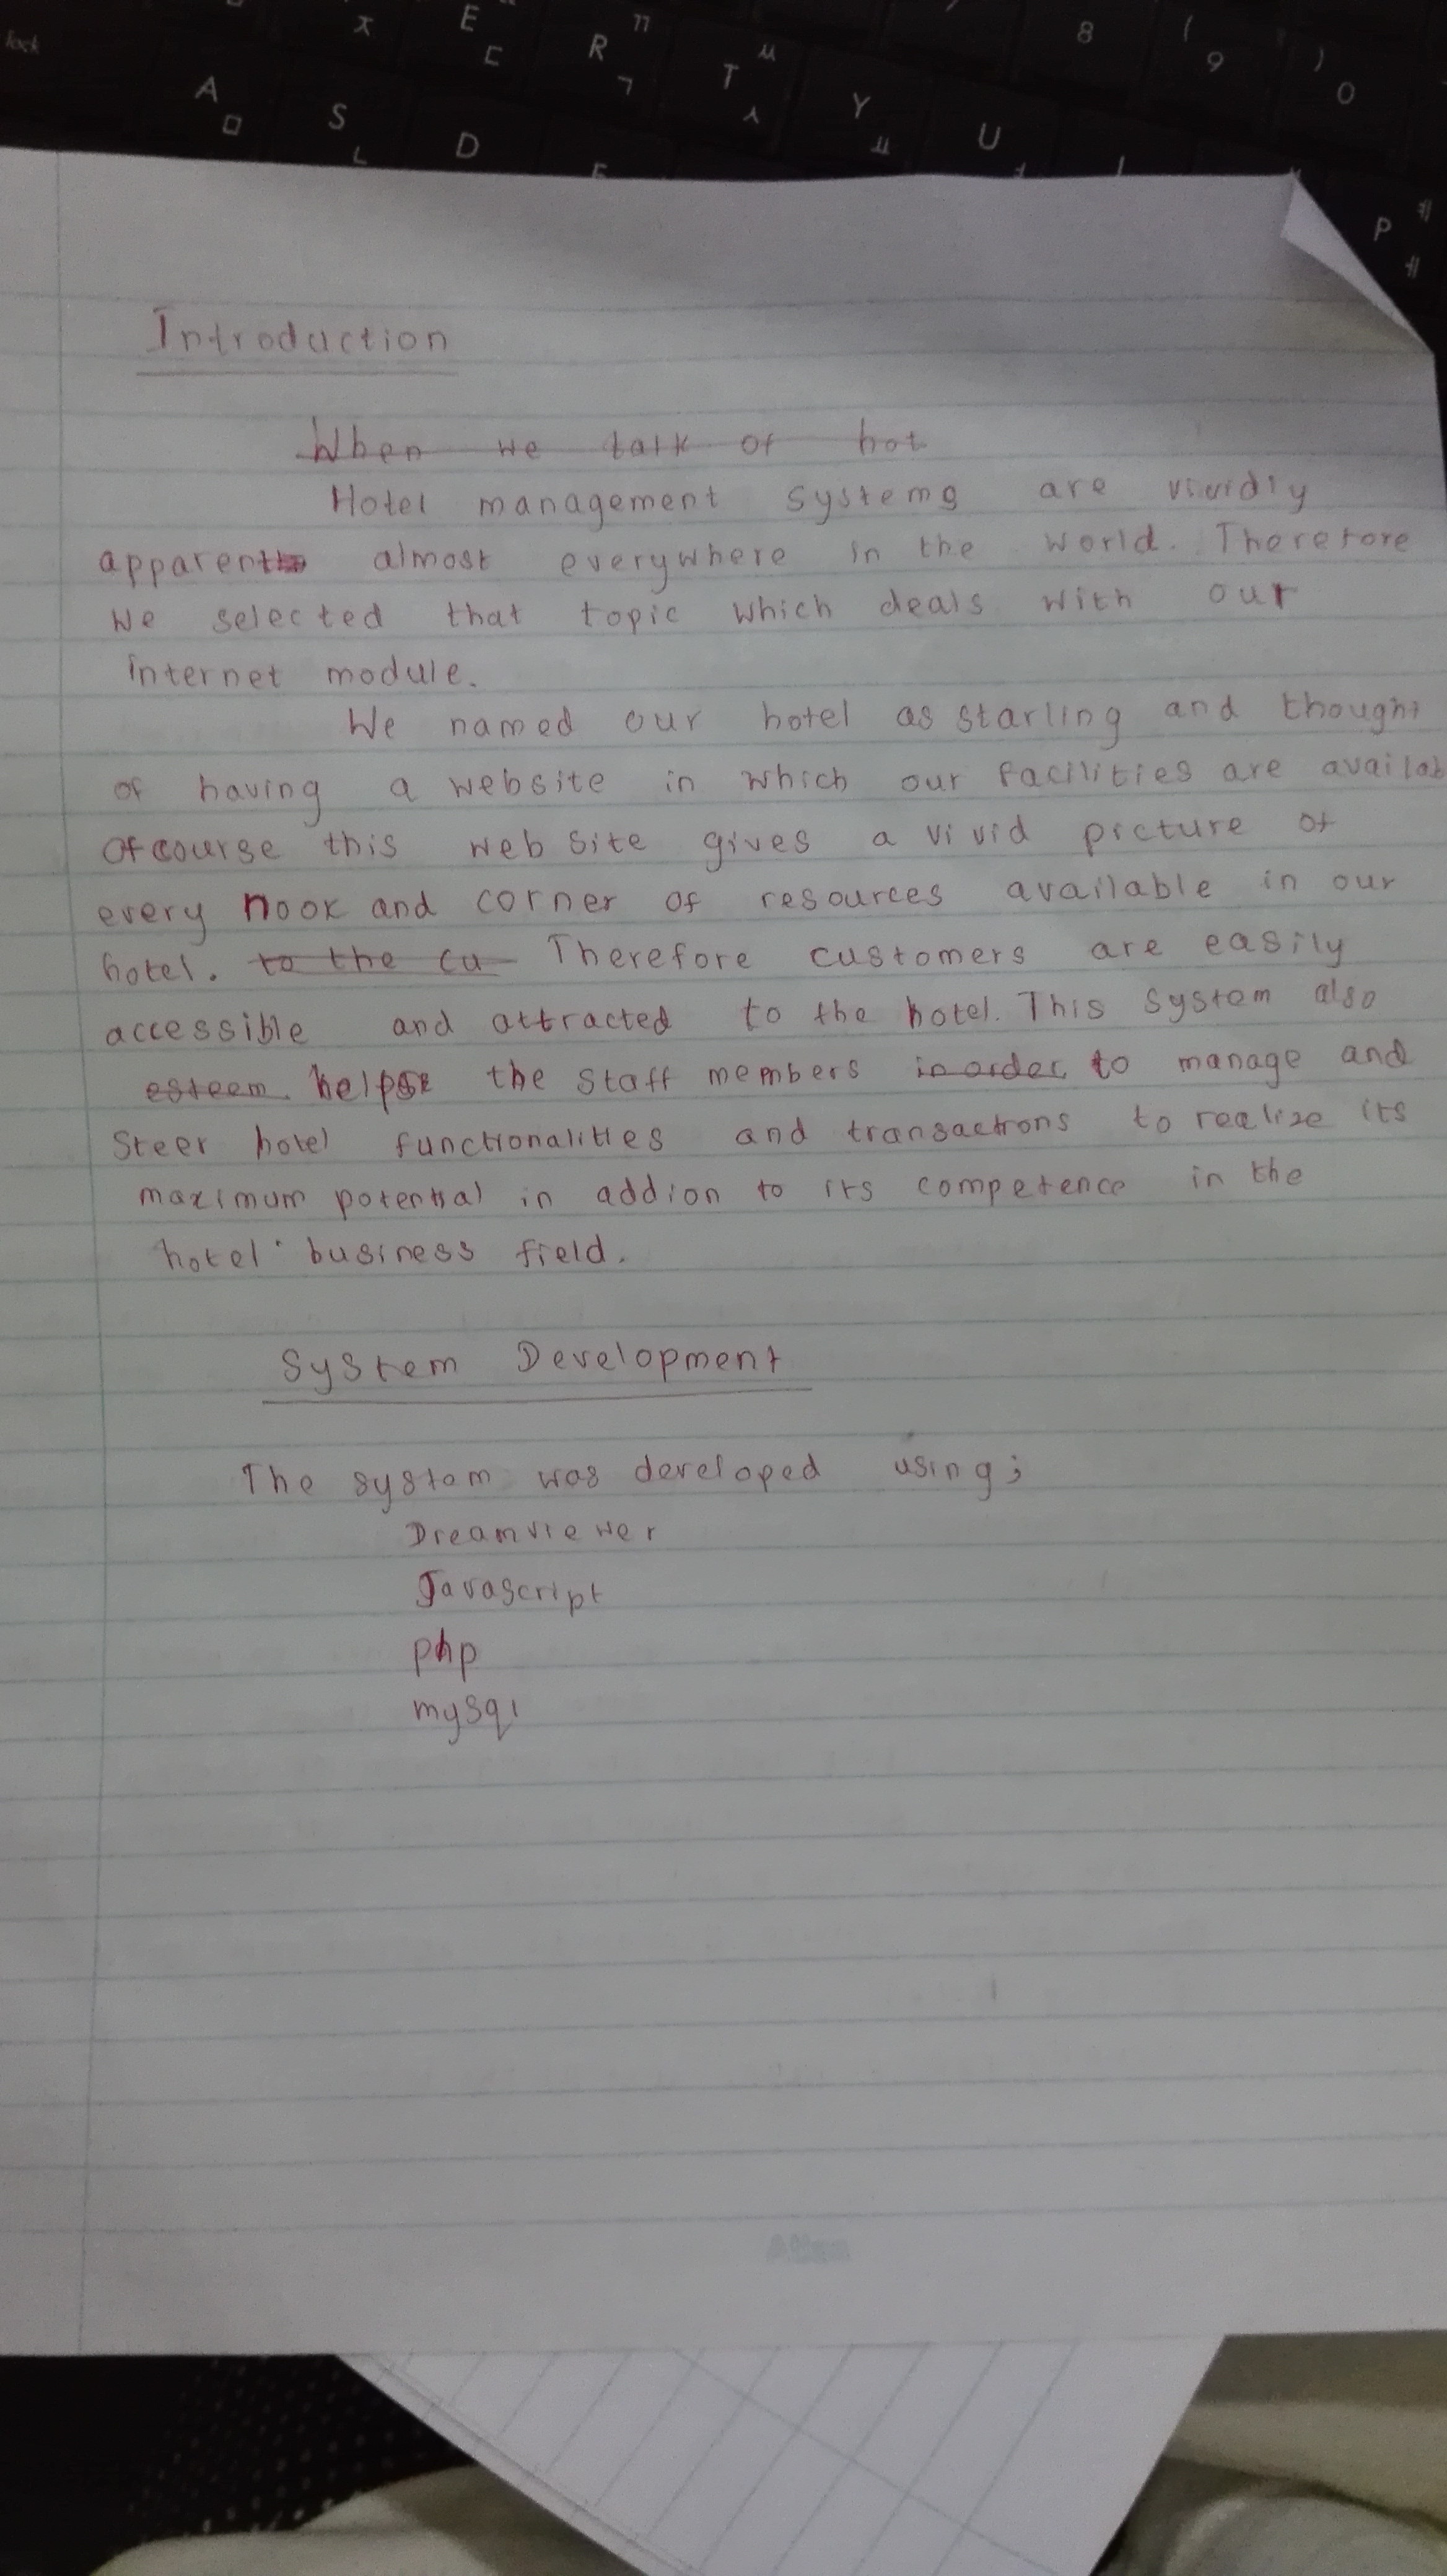 Introduction
When we talk of hot
Hotel management systems are vividly
apparent almost everywhere in the world. Therefore
we selected that topic which deals with our
internet module.
We named our hotel as starling and thought
of having a website in which our facilities are availab
Ofcourse this web site gives a vivid picture of
every nook and corner of resources available in our
hotel. to the cu Therefore customers are easily
accessible and attracted to the hotel. This system also
esteem helps the staff members in order to manage and
Steer hotel functionalities and transactions to realize its
maximum potential in addion to its competence in the
hotel business field.
System Development
The system was developed using;
Dreamviewer
Javascript
php
mysql